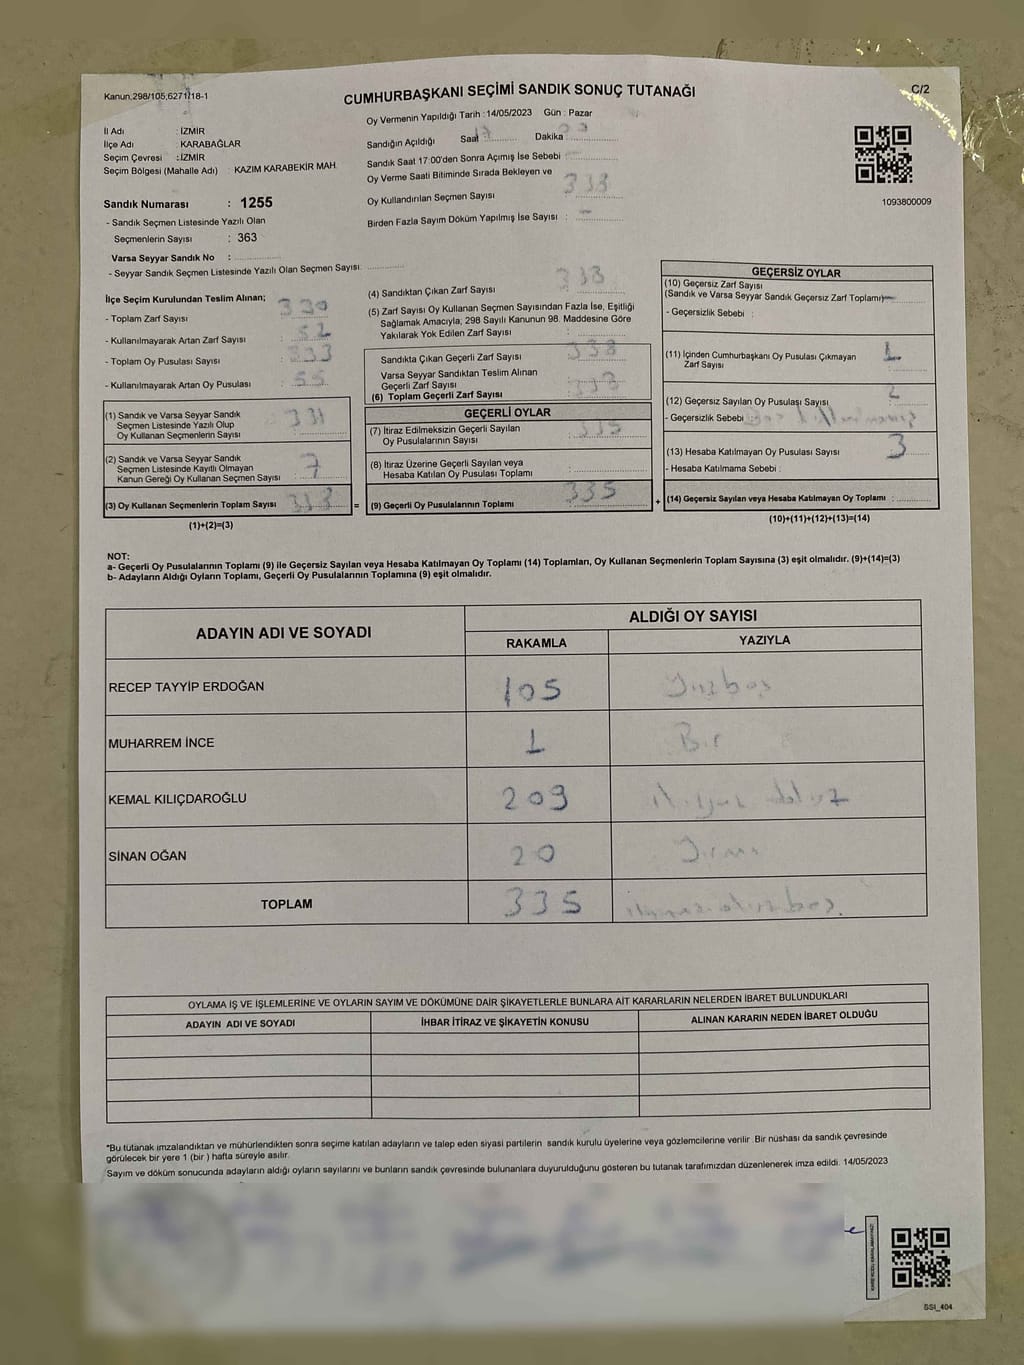 Kanun:298/105,6271/18-1
CUMHURBAŞKANI SEÇİMİ SANDIK SONUÇ TUTANAĞI
C/2
Oy Vermenin Yapıldığı Tarih : 14/05/2023 Gün : Pazar
İl Adı : İZMİR
İlçe Adı : KARABAĞLAR
Seçim Çevresi : İZMİR
Seçim Bölgesi (Mahalle Adı) : KAZIM KARABEKİR MAH.
Sandık Numarası : 1255
- Sandık Seçmen Listesinde Yazılı Olan
Seçmenlerin Sayısı : 363
Varsa Seyyar Sandık No :
- Seyyar Sandık Seçmen Listesinde Yazılı Olan Seçmen Sayısı:
Sandığın Açıldığı Saat 17 Dakika
Sandık Saat 17:00'den Sonra Açımış İse Sebebi :
Oy Verme Saati Bitiminde Sırada Bekleyen ve
Oy Kullandırılan Seçmen Sayısı : 338
Birden Fazla Sayım Döküm Yapılmış İse Sayısı : -
1093800009
İlçe Seçim Kurulundan Teslim Alınan;
- Toplam Zarf Sayısı : 390
- Kullanılmayarak Artan Zarf Sayısı : 52
- Toplam Oy Pusulası Sayısı :
- Kullanılmayarak Artan Oy Pusulası : 55
(1) Sandık ve Varsa Seyyar Sandık
Seçmen Listesinde Yazılı Olup
Oy Kullanan Seçmenlerin Sayısı : 331
(2) Sandık ve Varsa Seyyar Sandık
Seçmen Listesinde Kayıtlı Olmayan
Kanun Gereği Oy Kullanan Seçmen Sayısı : 7
(3) Oy Kullanan Seçmenlerin Toplam Sayısı : 338 =
(1)+(2)=(3)
(4) Sandıktan Çıkan Zarf Sayısı : 338
(5) Zarf Sayısı Oy Kullanan Seçmen Sayısından Fazla İse, Eşitliği
Sağlamak Amacıyla, 298 Sayılı Kanunun 98. Maddesine Göre
Yakılarak Yok Edilen Zarf Sayısı :
Sandıkta Çıkan Geçerli Zarf Sayısı : 338
Varsa Seyyar Sandıktan Teslim Alınan
Geçerli Zarf Sayısı :
(6) Toplam Geçerli Zarf Sayısı : 338
GEÇERLİ OYLAR
(7) İtiraz Edilmeksizin Geçerli Sayılan
Oy Pusulalarının Sayısı : 335
(8) İtiraz Üzerine Geçerli Sayılan veya
Hesaba Katılan Oy Pusulası Toplamı :
(9) Geçerli Oy Pusulalarının Toplamı : 335 +
GEÇERSİZ OYLAR
(10) Geçersiz Zarf Sayısı
(Sandık ve Varsa Seyyar Sandık Geçersiz Zarf Toplamı)
- Geçersizlik Sebebi :
(11) İçinden Cumhurbaşkanı Oy Pusulası Çıkmayan
Zarf Sayısı : 1
(12) Geçersiz Sayılan Oy Pusulası Sayısı : 2
- Geçersizlik Sebebi :
(13) Hesaba Katılmayan Oy Pusulası Sayısı : 3
- Hesaba Katılmama Sebebi :
(14) Geçersiz Sayılan veya Hesaba Katılmayan Oy Toplamı :
(10)+(11)+(12)+(13)=(14)
NOT:
a- Geçerli Oy Pusulalarının Toplamı (9) ile Geçersiz Sayılan veya Hesaba Katılmayan Oy Toplamı (14) Toplamları, Oy Kullanan Seçmenlerin Toplam Sayısına (3) eşit olmalıdır. (9)+(14)=(3)
b- Adayların Aldığı Oyların Toplamı, Geçerli Oy Pusulalarının Toplamına (9) eşit olmalıdır.
ADAYIN ADI VE SOYADI ALDIĞI OY SAYISI
RAKAMLA YAZIYLA
RECEP TAYYİP ERDOĞAN 105 Yüzbeş
MUHARREM İNCE 1 Bir
KEMAL KILIÇDAROĞLU 209 ikiyüz dokuz
SİNAN OĞAN 20 Yirmi
TOPLAM 335
OYLAMA İŞ VE İŞLEMLERİNE VE OYLARIN SAYIM VE DÖKÜMÜNE DAİR ŞİKAYETLERLE BUNLARA AİT KARARLARIN NELERDEN İBARET BULUNDUKLARI
ADAYIN ADI VE SOYADI İHBAR İTİRAZ VE ŞİKAYETİN KONUSU ALINAN KARARIN NEDEN İBARET OLDUĞU
*Bu tutanak imzalandıktan ve mühürlendikten sonra seçime katılan adayların ve talep eden siyasi partilerin sandık kurulu üyelerine veya gözlemcilerine verilir. Bir nüshası da sandık çevresinde
görülecek bir yere 1 (bir) hafta süreyle asılır.
Sayım ve döküm sonucunda adayların aldığı oyların sayılarını ve bunların sandık çevresinde bulunanlara duyurulduğunu gösteren bu tutanak tarafımızdan düzenlenerek imza edildi. 14/05/2023
SSI_404